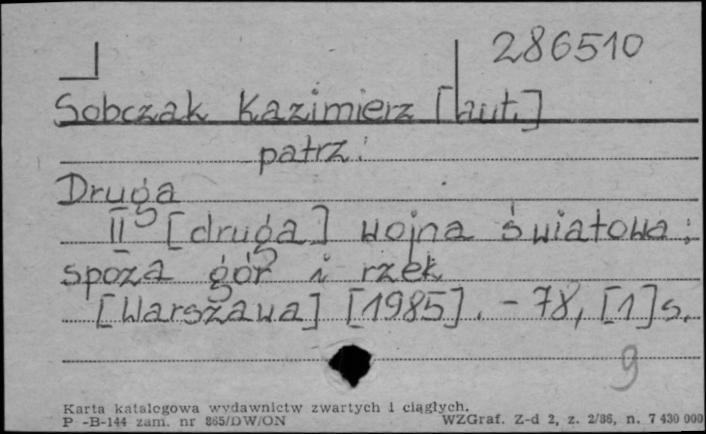 286510
Sobczak Kazimierz [aut.]
patrz:
Druga
II [druga] wojna światowa:
spoza gór i rzek
[Warszawa] [1985]. - 78, [1] s.
9
Karta katalogowa wydawnictw zwartych i ciągłych.
P-B-144 zam. nr 865/DW/ON WZGraf. Z-d 2, z. 2/86, n. 7 430 000